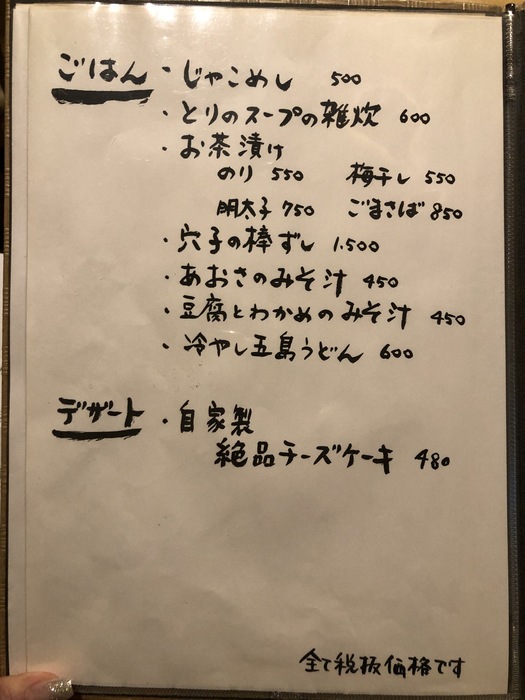 ごはん ・じゃこめし 500
・とりのスープの雑炊 600
・お茶漬け
のり 550 梅干し 550
明太子 750 ごまさば 850
・穴子の棒ずし 1.500
・あおさのみそ汁 450
・豆腐とわかめのみそ汁 450
・冷やし五島うどん 600
デザート ・自家製
絶品チーズケーキ 480
全て税抜価格です